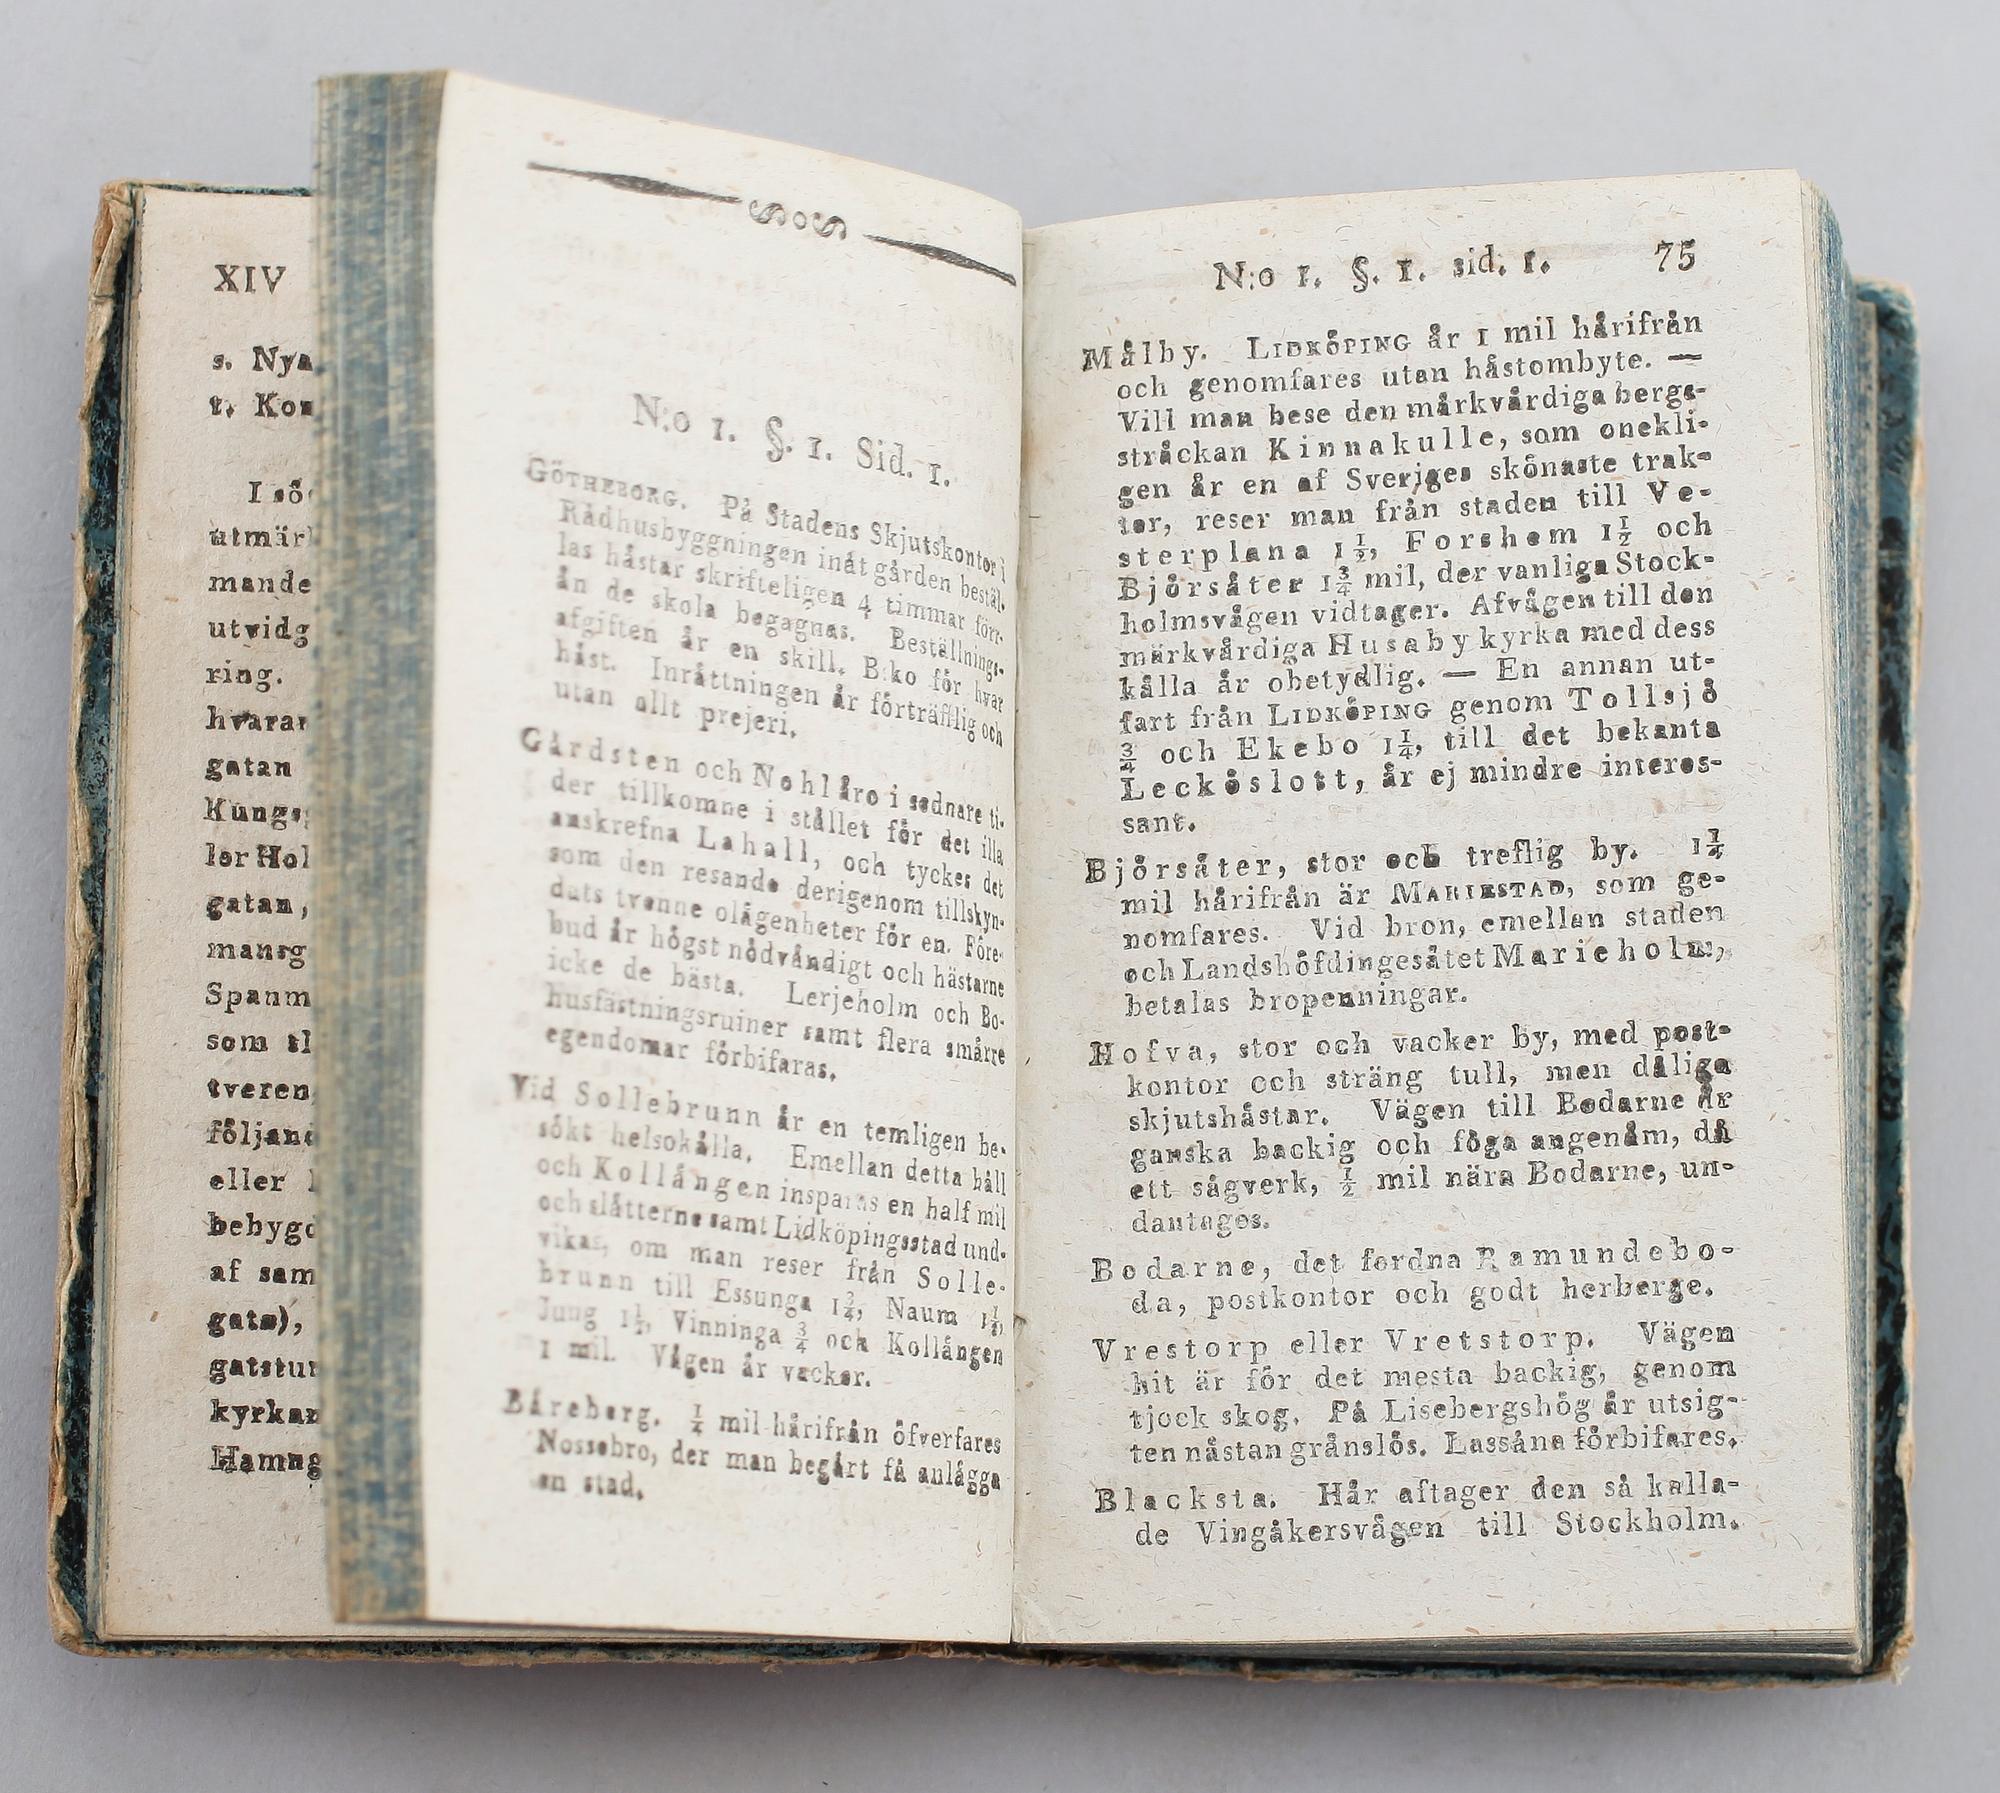 XIV
s. Nya
t. Kon
I sö
utmär
mande
utvidg
ring.
hvarar
gatan
Kungs
ler Hol
gatan,
mansg
Spanm
som sl
tveren
följand
eller
bebygd
af sam
gata),
gatstur
kyrkan
Hamng
N:o 1. §. 1. Sid. 1.
GÖTHEBORG. På Stadens Skjutskontor i
Rådhusbyggningen inåt gården bestäl-
las håstar skrifteligen 4 timmar förr-
ån de skola begagnas. Beställnings-
afgiften år en skill. B:ko för hvar
håst. Inråttningen år förträfflig och
utan allt prejeri.
Gårdsten och Nohlåro i sednare ti-
der tillkomne i stållet för det illa
anskrefna Lahall, och tyckes det
som den resande derigenom tillskyn-
dats tvenne olågenheter för en. Före-
bud år högst nödvåndigt och hästarne
icke de bästa. Lerjeholm och Bo-
husfästningsruiner samt flera smårre
egendomar förbifaras.
Vid Sollebrunn år en temligen be-
sökt helsokålla. Emellan detta håll
och Kollången insparas en half mil
och slåtterne samt Lidköpingsstad und-
vikas, om man reser från Solle-
brunn till Essunga 1¾, Naum 1¼,
Jung 1½, Vinninga ¾ och Kollången
1 mil. Vågen år vacker.
Båreberg. ¼ mil hårifrån öfverfares
Nossebro, der man begårt få anlågga
en stad.
N:o 1. §. 1. sid. 1. 75
Målby. LIDKÖPING år 1 mil hårifrån
och genomfares utan håstombyte. —
Vill man bese den mårkvårdiga bergs-
stråckan Kinnakulle, som onekli-
gen år en af Sveriges skönaste trak-
ter, reser man från staden till Ve-
sterplana 1½, Forshem 1½ och
Björsåter 1¾ mil, der vanliga Stock-
holmsvågen vidtager. Afvågen till den
märkvårdiga Husaby kyrka med dess
kålla år obetydlig. — En annan ut-
fart från LIDKÖPING genom Tollsjö
¾ och Ekebo 1¼, till det bekanta
Lecköslott, år ej mindre interes-
sant.
Björsåter, stor och treflig by. 1¼
mil hårifrån är MARIESTAD, som ge-
nomfares. Vid bron, emellan staden
och Landshöfdingesåtet Marieholm,
betalas bropenningar.
Hofva, stor och vacker by, med post-
kontor och sträng tull, men dåliga
skjutshåstar. Vägen till Bodarne år
ganska backig och föga angenåm, då
ett sågverk, ½ mil nära Bodarne, un-
dantages.
Bodarne, det fordna Ramundebo-
da, postkontor och godt herberge.
Vrestorp eller Vretstorp. Vägen
hit är för det mesta backig, genom
tjock skog. På Lisebergshög år utsig-
ten nåstan grånslös. Lassåna förbifares.
Blacksta. Hår aftager den så kalla-
de Vingåkersvågen till Stockholm.